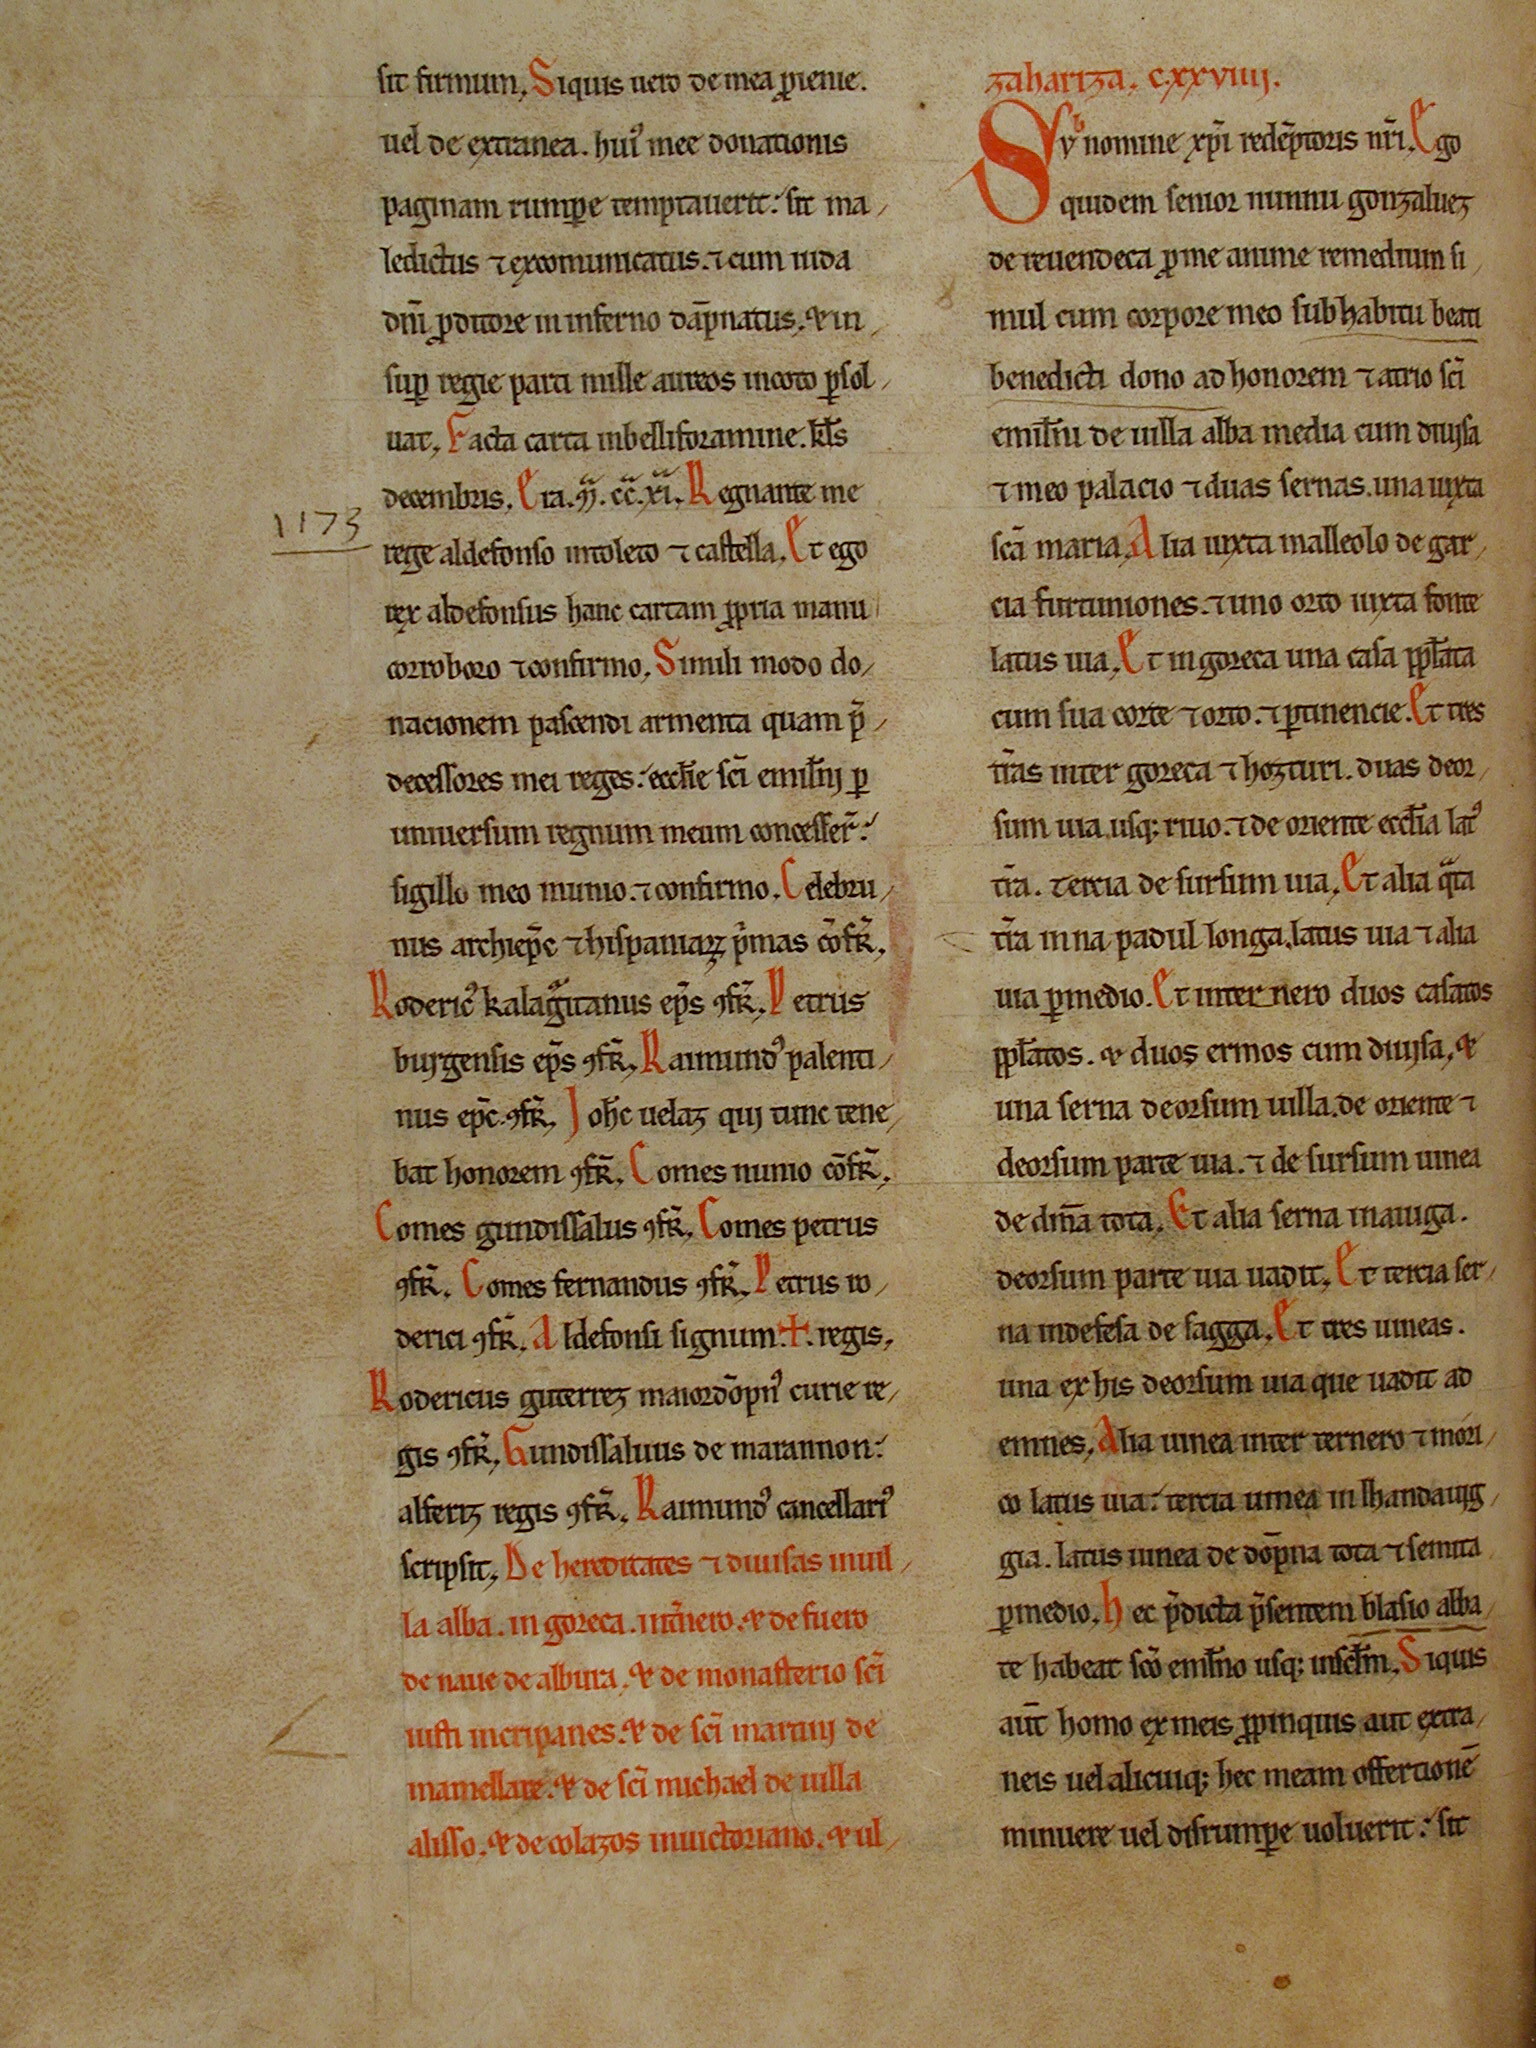 sit firmum. Siquis uero de mea ꝓienie.
uel de extranea. huiꝰ mee donationis
paginam rumꝑe temptauerit: sit ma-
ledictus ⁊ excomunicatus. ⁊ cum iuda
dñi ꝓditore in inferno dāpnatus. & in-
suꝑ regie parti mille aureos in coto ꝑsol-
uat. Facta carta inbelliforamine. kl̄s
decembris. Era. M̃. c̃c̃. xi. Regnante me
1173
rege aldefonso in toleto ⁊ castella. Et ego
rex aldefonsus hanc cartam ꝓpria manu
corroboro ⁊ confirmo. Simili modo do-
nacionem pascendi armenta quam p̄-
decessores mei reges: eccl̄ie sc̄i emil̄ij ꝑ
uniuersum regnum meum concesser̄:
sigillo meo munio. ⁊ confirmo. Celebru-
nus archiep̄c ⁊ hispaniaꝝ p̄mas cōfr̄.
Rodericꝰ kalag̃ritanus ep̄s ꝯfr̄. Petrus
burgensis ep̄s ꝯfr̄. Raimundꝰ palenti-
nus ep̄c. ꝯfr̄. Joh̄c uelaz qui tunc tene-
bat honorem ꝯfr̄. Comes nunio cōfr̄.
Comes gundissalus ꝯfr̄. Comes petrus
ꝯfr̄. Comes fernandus ꝯfr̄. Petrus ro-
derici ꝯfr̄. Aldefonsi signum. ✝. regis.
Rodericus guterrez maiordōpnꝰ curie re-
gis ꝯfr̄. Gundissaluus de marannon:
alferiz regis ꝯfr̄. Raimundꝰ cancellariꝰ
scripsit. De hereditates ⁊ diuisas in uil-
la alba. in goreca. int̄nero. & de fuero
de naue de albura. & de monasterio sc̄i
iusti in cripanes. & de sc̄i martiij de
mamellare. & de sc̄i michael de uilla
alisso. & de colazos in uictoriano. & ul-
zahariza. cxxviiij.
Svᵇ nomine xp̄i redēptoris nr̄i. Ego
quidem senior nunnu gonzaluez
de reuendeca ꝓ me anime remedium si-
mul cum corpore meo sub habitu beati
benedicti dono ad honorem ⁊ atrio sc̄i
emil̄iu de uilla alba media cum diuisa
⁊ meo palacio ⁊ duas sernas. una iuxta
sc̄a maria. Alia iuxta malleolo de gar-
cia furtuniones. ⁊ uno orto iuxta fonte
latus uia. Et in goreca una casa ppl̄ata
cum sua corte ⁊ orto. ⁊ ꝑtinencie. Et tres
tr̄as inter goreca ⁊ hozturi. duas deor-
sum uia usqꝫ riuo. ⁊ de oriente eccl̄ia latꝰ
tr̄a. tercia de sursum uia. Et alia q̄rta
tr̄a inna padul longa. latus uia ⁊ alia
uia ꝑ medio. Et inter nero duos casatos
ppl̄atos. & duos ermos cum diuisa. &
una serna deorsum uilla. de oriente ⁊
deorsum parte uia. ⁊ de sursum uinea
de dm̄a tota. Et alia serna inaiuga.
deorsum parte uia uadit. Et tercia ser-
na indefesa de sagga. Et tres uineas.
una ex his deorsum uia que uadit ad
ennes. Alia uinea inter ternero ⁊ mori-
co latus uia: tercia uinea in lhandauig-
gia. latus uinea de dōpna tota ⁊ semita
ꝑ medio. Hec p̄dicta p̄sentem blasio abba-
te habeat sc̄o emil̄no usqꝫ in sc̄l̄m. Siquis
aut̄ homo ex meis ꝓpinquis aut extra-
neis uel alicuiqꝫ hec meam offercionē
minuere uel disrumꝑe uoluerit: sit